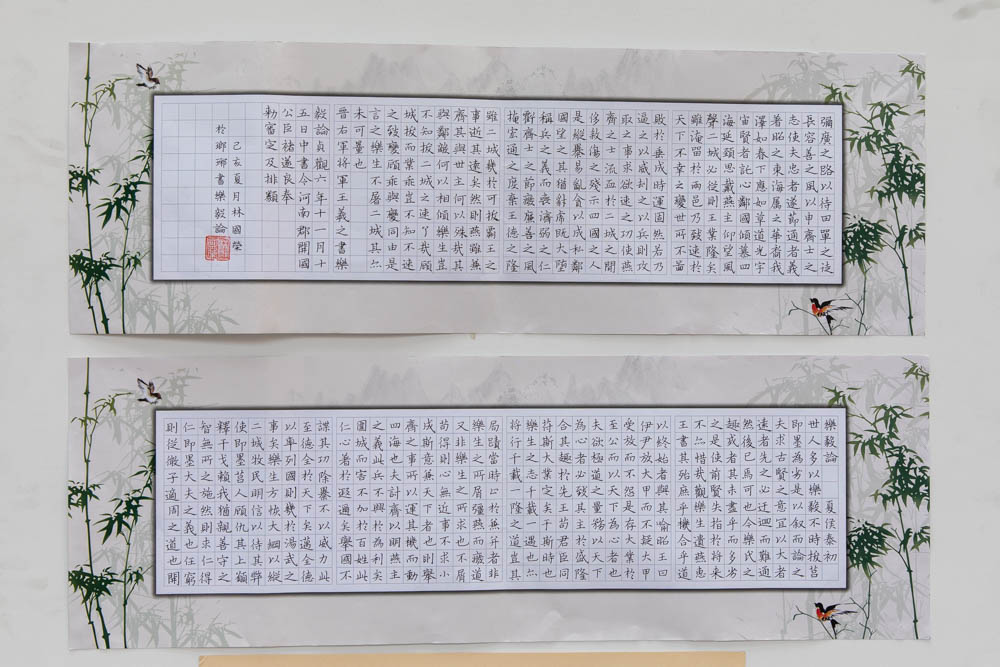 彌廣之路以待田單之徒
長容善之風以申齊士之
志使夫忠者遂節通者義
著昭之東海属之華裔我
澤如春下應如草道光宇
宙賢者託心鄰國傾慕四
海延頸思戴燕主仰望風
聲二城必從則王業隆矣
雖淹留於兩邑乃致速於
天下不幸之變世所不啚
敗於垂成時運固然若乃
逼之以威刧之以兵則攻
取之事求欲速之功使燕
齊之士流血於二城之閒
侈煞傷之殘示四國之人
是縱暴易亂貪以成私鄰
國望之其猶豺虎既大墮
稱兵之義而喪濟弱之仁
虧齊士之節廢廉善之風
掩宏通之度棄王德之隆
雖二城幾於可拔霸王之
事逝其遠矣然則燕雖兼
齊其與世主何以殊哉其
與鄰敵何以相傾樂生豈
不知拔二城之速了哉顧
城拔而業乖豈不知不速
之致變顧乖與變同由是
言之樂生不屠二城其亦
未可量也
晉右將軍王羲之書樂
毅論貞觀六年十一月十
五日中書令河南郡開國
公臣褚遂良奉
勅審定及排類
己亥夏月林國瑩
於鄉瑯書樂毅論
樂毅論 夏侯泰初
世人多以樂毅不時拔莒
即墨為劣是以叙而論之
夫求古賢之意宜以大者
遠者先之必迂迴而難通
然後已焉可也今樂氏之
趣或者其未盡乎而多劣
之是使前賢失指於將来
不亦惜哉觀樂生遺燕惠
王書其殆庶乎機合乎道
以終始者與其喻昭王曰
伊尹放大甲而不疑大甲
受放而不怨是存大業於
至公而以天下為心者也
夫欲極道之量務以天下
為心者必致其主於盛隆
合其趣於先王苟君臣同
符斯大業定矣于斯時也
樂生之志千載一遇也亦
將行千載一隆之道豈其
局蹟當時止於兼并者非
樂生之所屑彊燕而廢道
又非樂生之所求也不屑
苟得則心無近事不求小
成斯意兼天下者也則舉
齊之事所以運其機而動
四海也夫討齊以明燕主
之義此兵不興於為利矣
圍城而害不加於百姓此
仁心著於遐邇矣舉國不
謀其功除暴不以威力此
至德全於天下矣邁全德
以率列國則幾於湯武之
事矣樂生方恢大綱以縱
二城牧民明信以待其弊
使即墨莒人顧仇其上願
釋干戈賴我猶親善守之
智無所之施然則求仁得
仁即墨大夫之義也任窮
則從微子適周之道也開